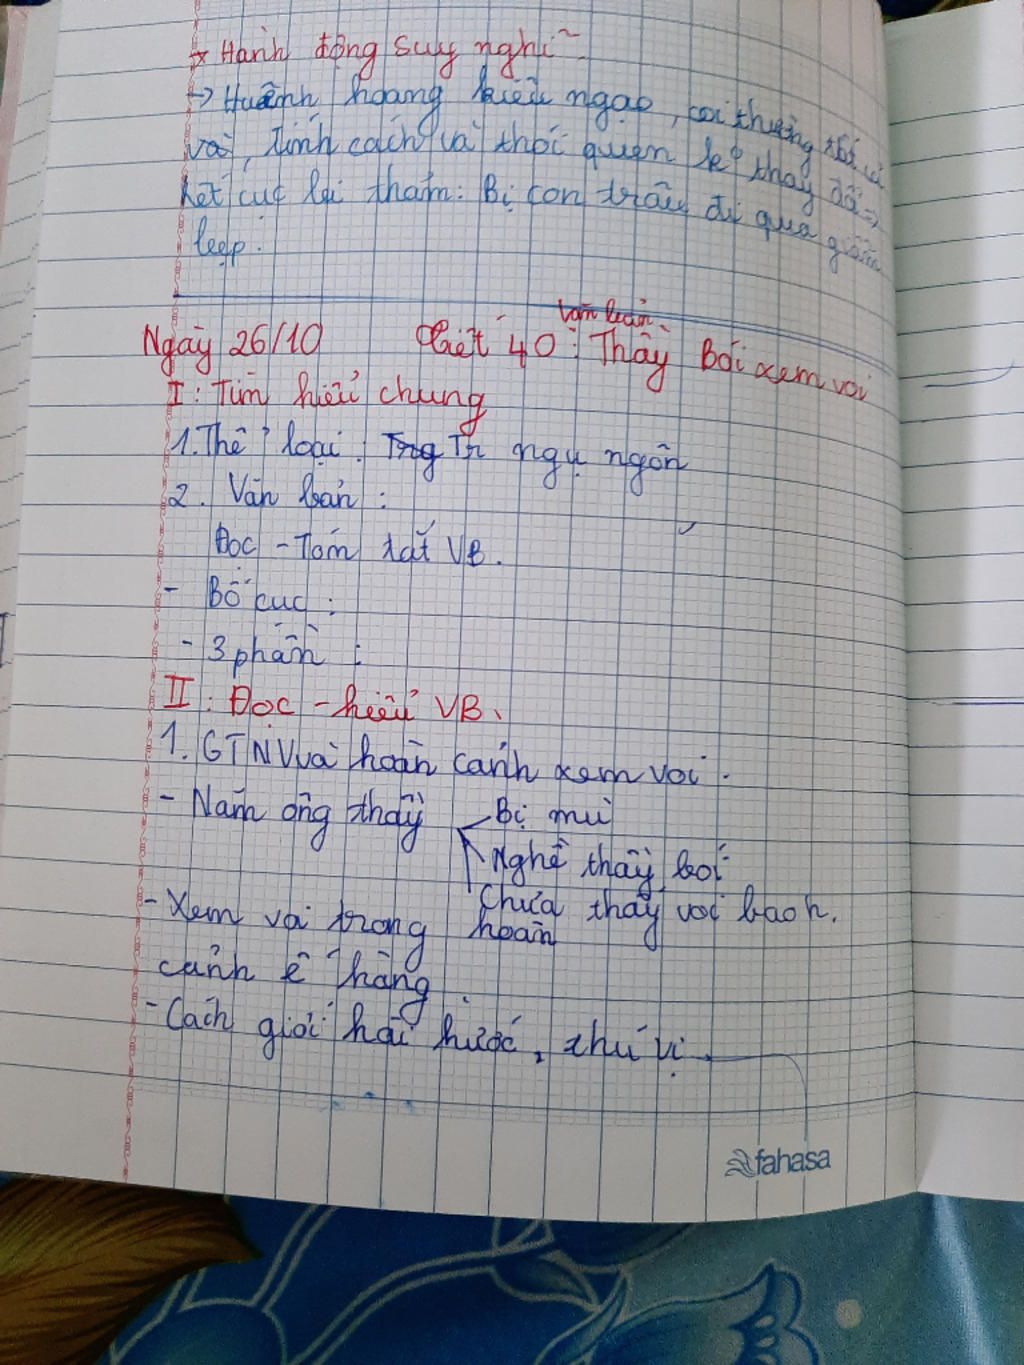 * Hành động suy nghĩ
-> Huênh hoang kiêu ngạo, coi thường tất cả
và, tính cách và thói quen k° thay đổi =>
kết cục bi thảm: Bị con trâu đi qua giẫm
bẹp.
Văn bản:
Ngày 26/10 Tiết 40: Thầy Bói xem voi
I: Tìm hiểu chung
1. Thể loại: Tr ngụ ngôn
2. Văn bản:
Đọc - Tóm tắt VB.
- Bố cục:
- 3 phần:
II: Đọc - hiểu VB.
1. GTNV và hoàn cảnh xem voi.
- Năm ông thầy Bị mù
Nghề thầy bói
Chưa thấy voi bao h.
- Xem voi trong hoàn
cảnh ế hàng.
- Cách giới hài hước, thú vị.
fahasa